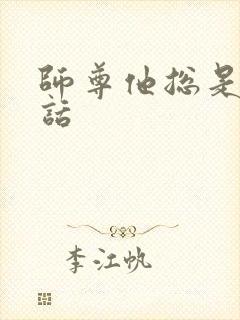 師尊他總是
話
李江帆